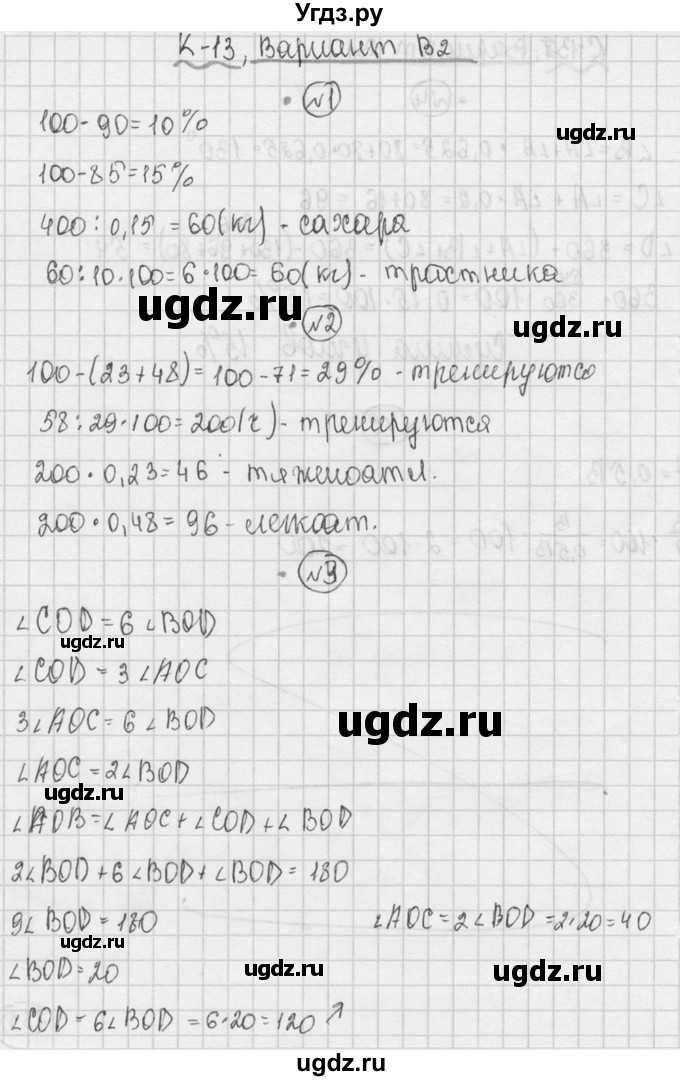 Угдз.ру
К-13, Вариант В2
№1
100-90=10%
100-85=15%
400:0,15=60(кг) - сахара
60:10·100=6·100=60(кг) - тростника
№2
100-(23+48)=100-71=29% - тренируются
58:29·100=200(г) - тренируются
200·0,23=46 - тяжелоатл.
200·0,48=96 - легкоат.
№3
∠COD=6∠BOD
∠COD=3∠AOC
3∠AOC=6∠BOD
∠AOC=2∠BOD
∠AOB=∠AOC+∠COD+∠BOD
2∠BOD+6∠BOD+∠BOD=180
9∠BOD=180
∠AOC=2∠BOD=2·20=40
∠BOD=20
∠COD=6∠BOD=6·20=120↗
ugdz.ru
ugdz.ru
ugdz.ru
ugdz.ru
ugdz.ru
ugdz.ru
ugdz.ru
ugdz.ru
ugdz.ru
ugdz.ru
ugdz.ru